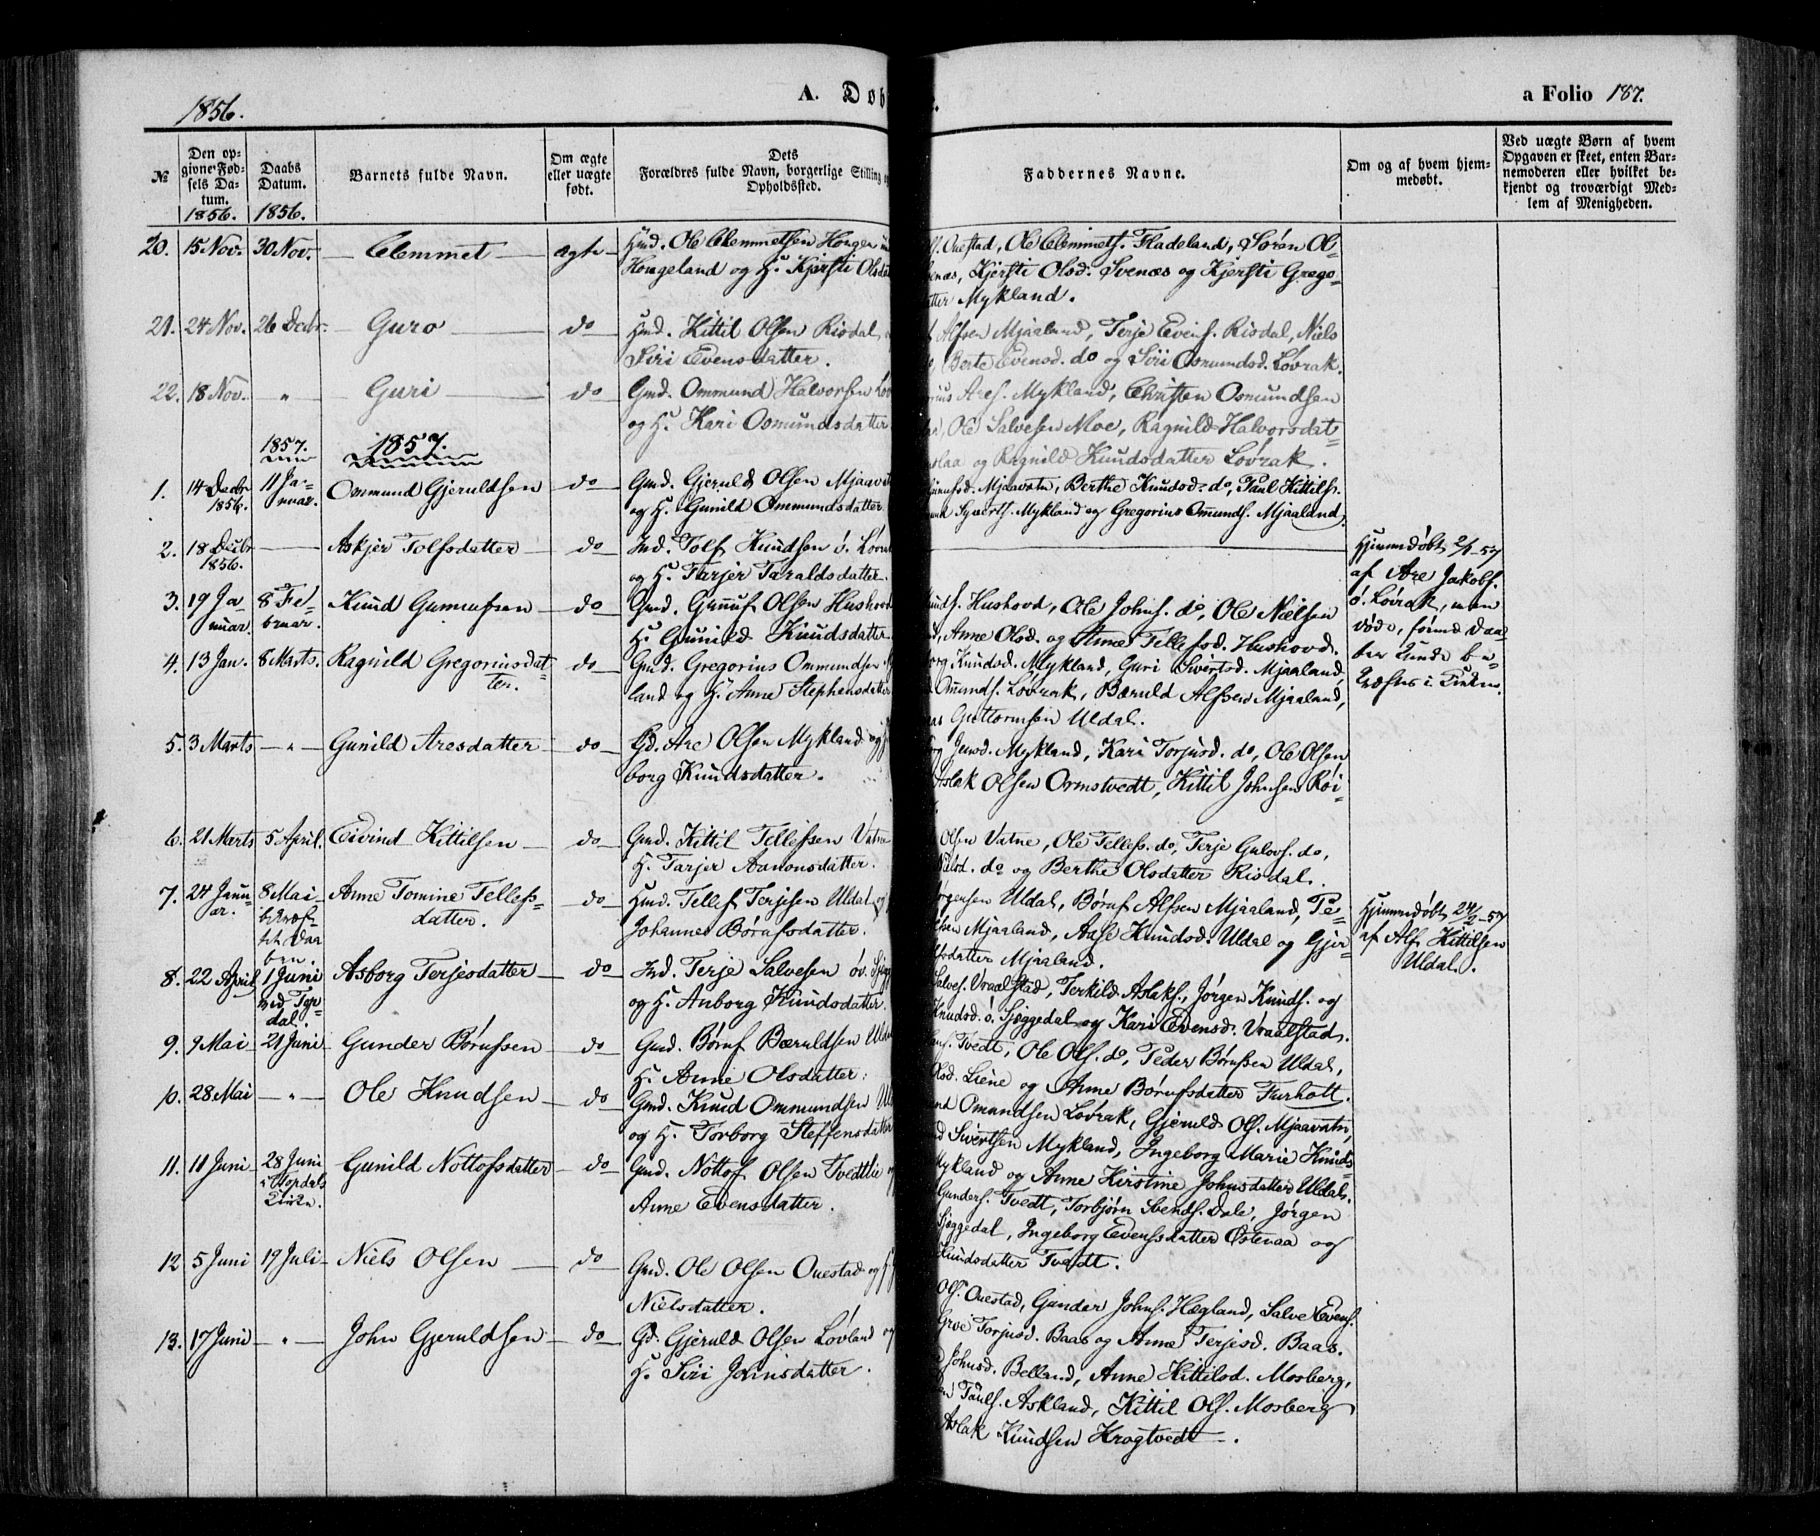 1856.
A. Døb
a Folio 187.
№
Den opgivne Fødsels Datum.
1856.
Daabs Datum.
1856.
Barnets fulde Navn.
Om ægte eller uægte født.
Dets Forældres fulde Navn, borgerlige Stilling og Opholdssted.
Faddernes Navne.
Om og af hvem hjemmedøbt.
Ved uægte Børn af hvem Opgaven er skeet, enten Barnemoderen eller hvilket bekjendt og troværdigt Medlem af Menigheden.
20. 15 Nov. 30 Nov. Clemmet ægte Hmd. Ole Clemmetsen Hougen
Hougeland og H. Kjersti Olsd
Ouestad, Ole Clemmets. Fladeland, Søren Ol-
enæs, Kjersti Olsd. Svenæs og Kjersti Grego-
atter Mykland.
21. 24 Nov. 26 Decbr. Guro do Hmd. Kittil Olsen Risdal,
Siri Evensdatter.
Alfsen Mjaaland, Terje Evens. Risdal, Niels
Berte Evensd. do og Siri Osmundsd. Lovrak.
22. 18 Nov. " Guri do Gmd. Ommund Halvorsen Lov
og H. Kari Osmundsdatter
rius Ares. Mykland, Christen Osmundsen
Ole Salvesen Moe, Ragnild Halvorsdat-
slaa og Ragnild Knudsdatter Lovrak.
1857. 1857.
1. 14 Decbr 1856. 11 Januar. Ommund Gjeruldsen do Gmd. Gjeruld Olsen Mjaavat
og H. Gunild Ommundsdatter
Mjaavatn, Berthe Knudsd. do, Paul Kittils.
Syverts. Mykland og Gregorius Ommunds. Mjaaland.
2. 18 Decbr 1856. Askjer Tolfsdatter do Ind. Tolf Knudsen ø. Lovrak
og H. Tarjer Taraldsdatter.
Hjemmedøbt 2/1-57
af Are Jakobs.
ø. Lovrak, men
døde, førend Daa
ben kunde be-
kræftes i Kirken.
3. 19 Januar. 8 Februar. Knud Gunnufsen do Gmd. Gunuf Olsen Hushovd
H. Gunild Knudsdatter
unds. Hushovd, Ole Johns. do, Ole Nielsen
Anne Olsd. og Anne Tellefsd. Hushovd.
4. 13 Jan. 8 Marts. Ragnild Gregoriusdatter. do Gmd. Gregorius Ommundsen
land og H. Anne Stephensdatter
org Knudsd. Mykland, Guri Sivertsd. Mjaaland,
Omunds. Lovrak, Bæruld Alfsen Mjaaland,
as Guttormsen Uldal.
5. 3 Marts " Gunild Aresdatter do Gd. Are Olsen Mykland og
borg Knudsdatter.
org Jensd. Mykland, Kari Torjusd. do, Ole Olsen
Aslak Olsen Ormstvedt, Kittil Johnsen Røi-
6. 21 Marts 5 April. Eivind Kittilsen do Gmd. Kittil Tellefsen Vatne
H. Tarjer Aanonsdatter.
Olsen Vatne, Ole Tellefs. do, Terje Gulovs. do,
Nielsd. do og Berthe Olsdatter Risdal.
7. 24 Januar. 8 Mai bekræftet Daaben. Anne Tomine Tellefsdatter. do Hmd. Tellef Terjesen Uldal og
Johanne Børufsdatter.
ørgensen Uldal, Børuf Alfsen Mjaaland, Te-
sen Mjaaland, Aase Knudsd. Uldal og Gjer-
sdatter Mjaaland.
Hjemmedøbt 24/2-57
af Alf Kittilsen
Uldal.
8. 22 April 1 Juni ved Tovdal. Asborg Terjesdatter do Ind. Terje Salvesen øv. Sjegg
og H. Anborg Knudsdatter.
Salves. Vraalstad, Terkild Aslaks., Jørgen Knuds. og
Knudsd. ø. Sjeggedal og Kari Evensd. Vraalstad.
9. 9 Mai 21 Juni Gunder Børufsen do Gmd. Børuf Bæruldsen Uldal
H. Anne Olsdatter.
Tvedt, Ole Ols. do, Peder Børufsen Uldal,
Olsd. Liene og Anne Børufsdatter Furholt.
10. 28 Mai " Ole Knudsen do Gmd. Knud Ommundsen
og H. Torborg Steffensdatter
und Omundsen Lovrak, Gjeruld Ols. Mjaavatn,
Sivertsen Mykland, Ingeborg Marie Knuds-
Mykland og Anne Kirstine Johnsdatter Uldal.
11. 11 Juni 28 Juni i Tovdals Kirke. Gunild Nottofsdatter do Gmd. Nottof Olsen Tvedtlie
Anne Evensdatter.
Gunders. Tvedt, Torbjørn Svends. Dale, Jørgen
Sjeggedal, Ingeborg Evensdatter Østenaa og
Knudsdatter Tvedt.
12 5 Juni 19 Juli Niels Olsen do Gmd. Ole Olsen Ouestad og H.
Nielsdatter.
Ols. Ouestad, Gunder Johns. Hægland, Salve Evens.
Grve Torjusd. Baas og Anne Terjesd. Baas.
13. 17 Juni " John Gjeruldsen do Gd. Gjeruld Olsen Lovland og
H. Siri Johnsdatter.
Johnsd. Belland, Anne Kittilsd. Mosberg,
Pauls. Askland, Kittil Ols. Mosberg
Aslak Knudsen Krogtvedt.